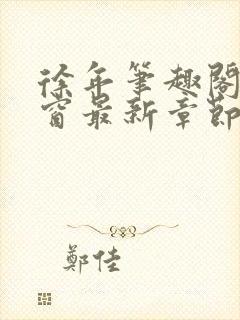 徐年筆趣閣
窗最新章節
鄭佳